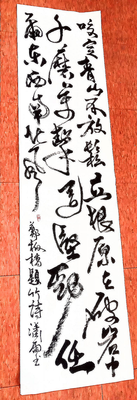 咬定青山不放鬆立根原在破岩中
千磨萬擊還堅勁任
爾東西南北風
鄭板橋題竹詩